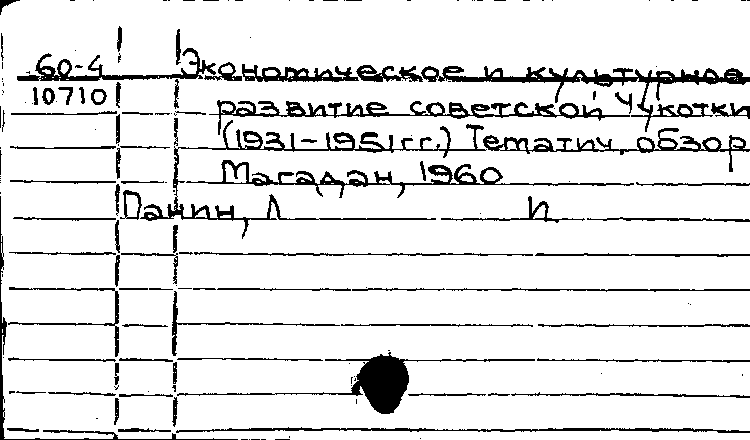 60-4 Экономическое и культурное
10710 развитие советской Чукотки
(1931-1951гг.) Тематич. обзор
Магадан, 1960
Панин, Л п